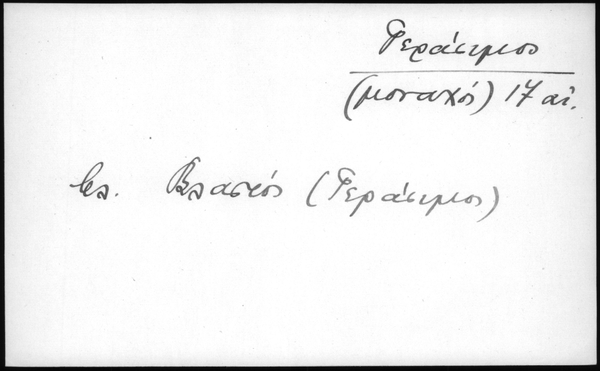 Γεράσιμος
(μοναχός) 17 αἰ.
βλ. Βλαστός (Γεράσιμος)